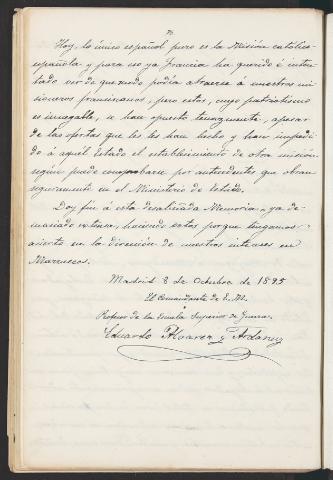 Hoy, lo único español puro es la Misión católico-
española y para eso ya Francia ha querido é inten-
tado ver de que modo podía atraerse á nuestros mi-
sioneros franciscanos, pero estos, cuyo patriotismo
es innegable, se han opuesto tenazmente, apesar
de las ofertas que les han hecho y han impedi-
do á aquel Estado el establecimiento de otra misión
según puede comprobarse por antecedentes que obran
seguramente en el Ministerio de Estado.
Doy fin á esta desaliñada Memoria, ya de-
masiado extensa, haciendo votos porque tengamos
acierto en la dirección de nuestros intereses en
Marruecos.
Madrid 8 de Octubre de 1895
El Comandante de E. M.
Profesor de la Escuela Superior de Guerra
Eduardo Alvarez y Ardanuy